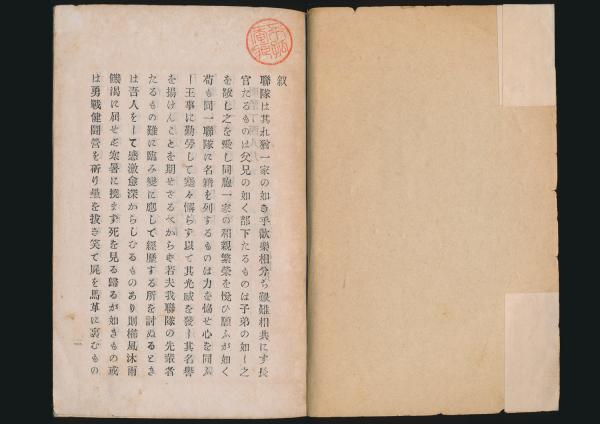 叙
聯隊は其れ猶一家の如き乎歓楽相分ち艱難相共にす長
官たるものは父兄の如く部下たるものは子弟の如し之
を敬し之を愛し同胞一家の和親繁栄を悦ひ願ふが如く
苟も同一聯隊に名籍を列するものは力を協せ心を同ふ
し王事に勤労して蹇々懈らす以て其光威を発し其名誉
を揚けんことを期せさるへからす若夫我聯隊の先輩者
たるもの難に臨み変に応して経歴する所を討ぬるとき
は吾人をして感激愈深からしむるものあり則櫛風沐雨
饑渇に屈せす寒暑に撓ます死を見る帰るが如きもの或
は勇戦健闘営を斫り塁を抜き笑て屍を馬革に裹むもの
一